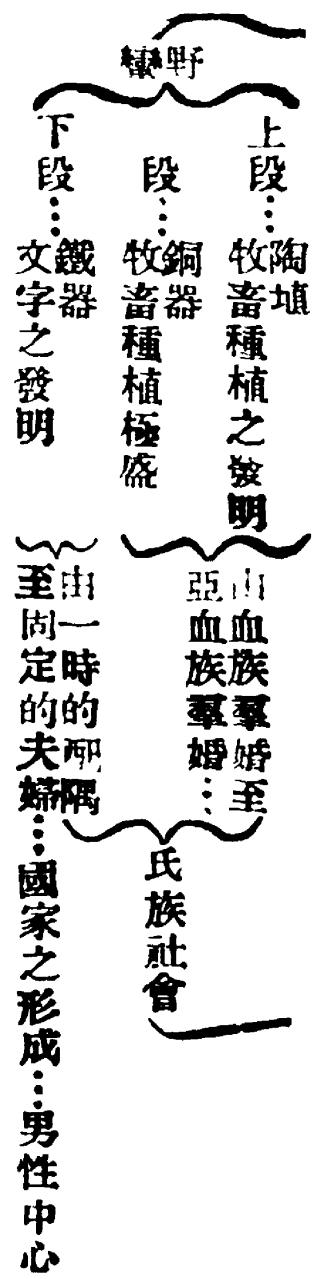 野蠻
上段…
陶埴
牧畜種植之發明
段…
銅器
牧畜種植極盛
下段…
鐵器
文字之發明
由血族羣婚至
亞血族羣婚…
由一時的配隅
至固定的夫婦…國家之形成…男性中心
氏族社會